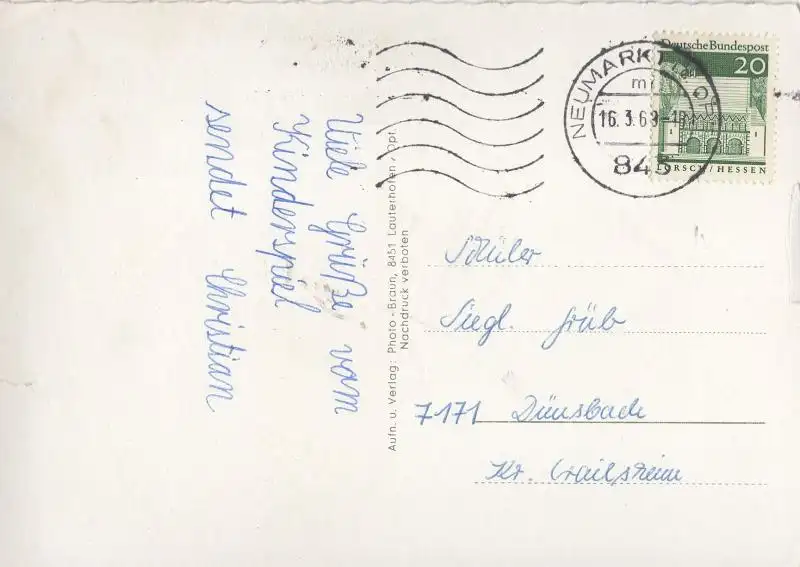 Viele Grüße vom
Kinderspiel
sendet Christian
Aufn. u. Verlag: Photo-Braun, 8451 Lauterhofen/Opf.
Nachdruck verboten
NEUMARKT
16.3.69
845
Deutsche Bundespost
20
RSCH/HESSEN
Schüler
Siegl. Grüb
7171 Dünsbach
Kr. Crailsheim